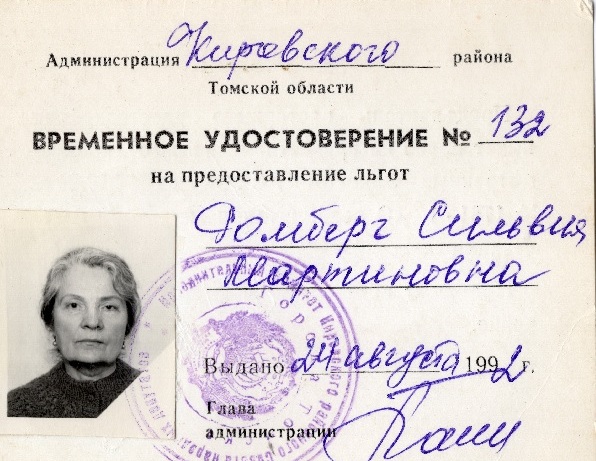 Администрация Кировского района
Томской области
ВРЕМЕННОЕ УДОСТОВЕРЕНИЕ № 132
на предоставление льгот
Ломберг Сильвия
Мартиновна
Выдано 24 августа 1992 г.
Глава
администрации